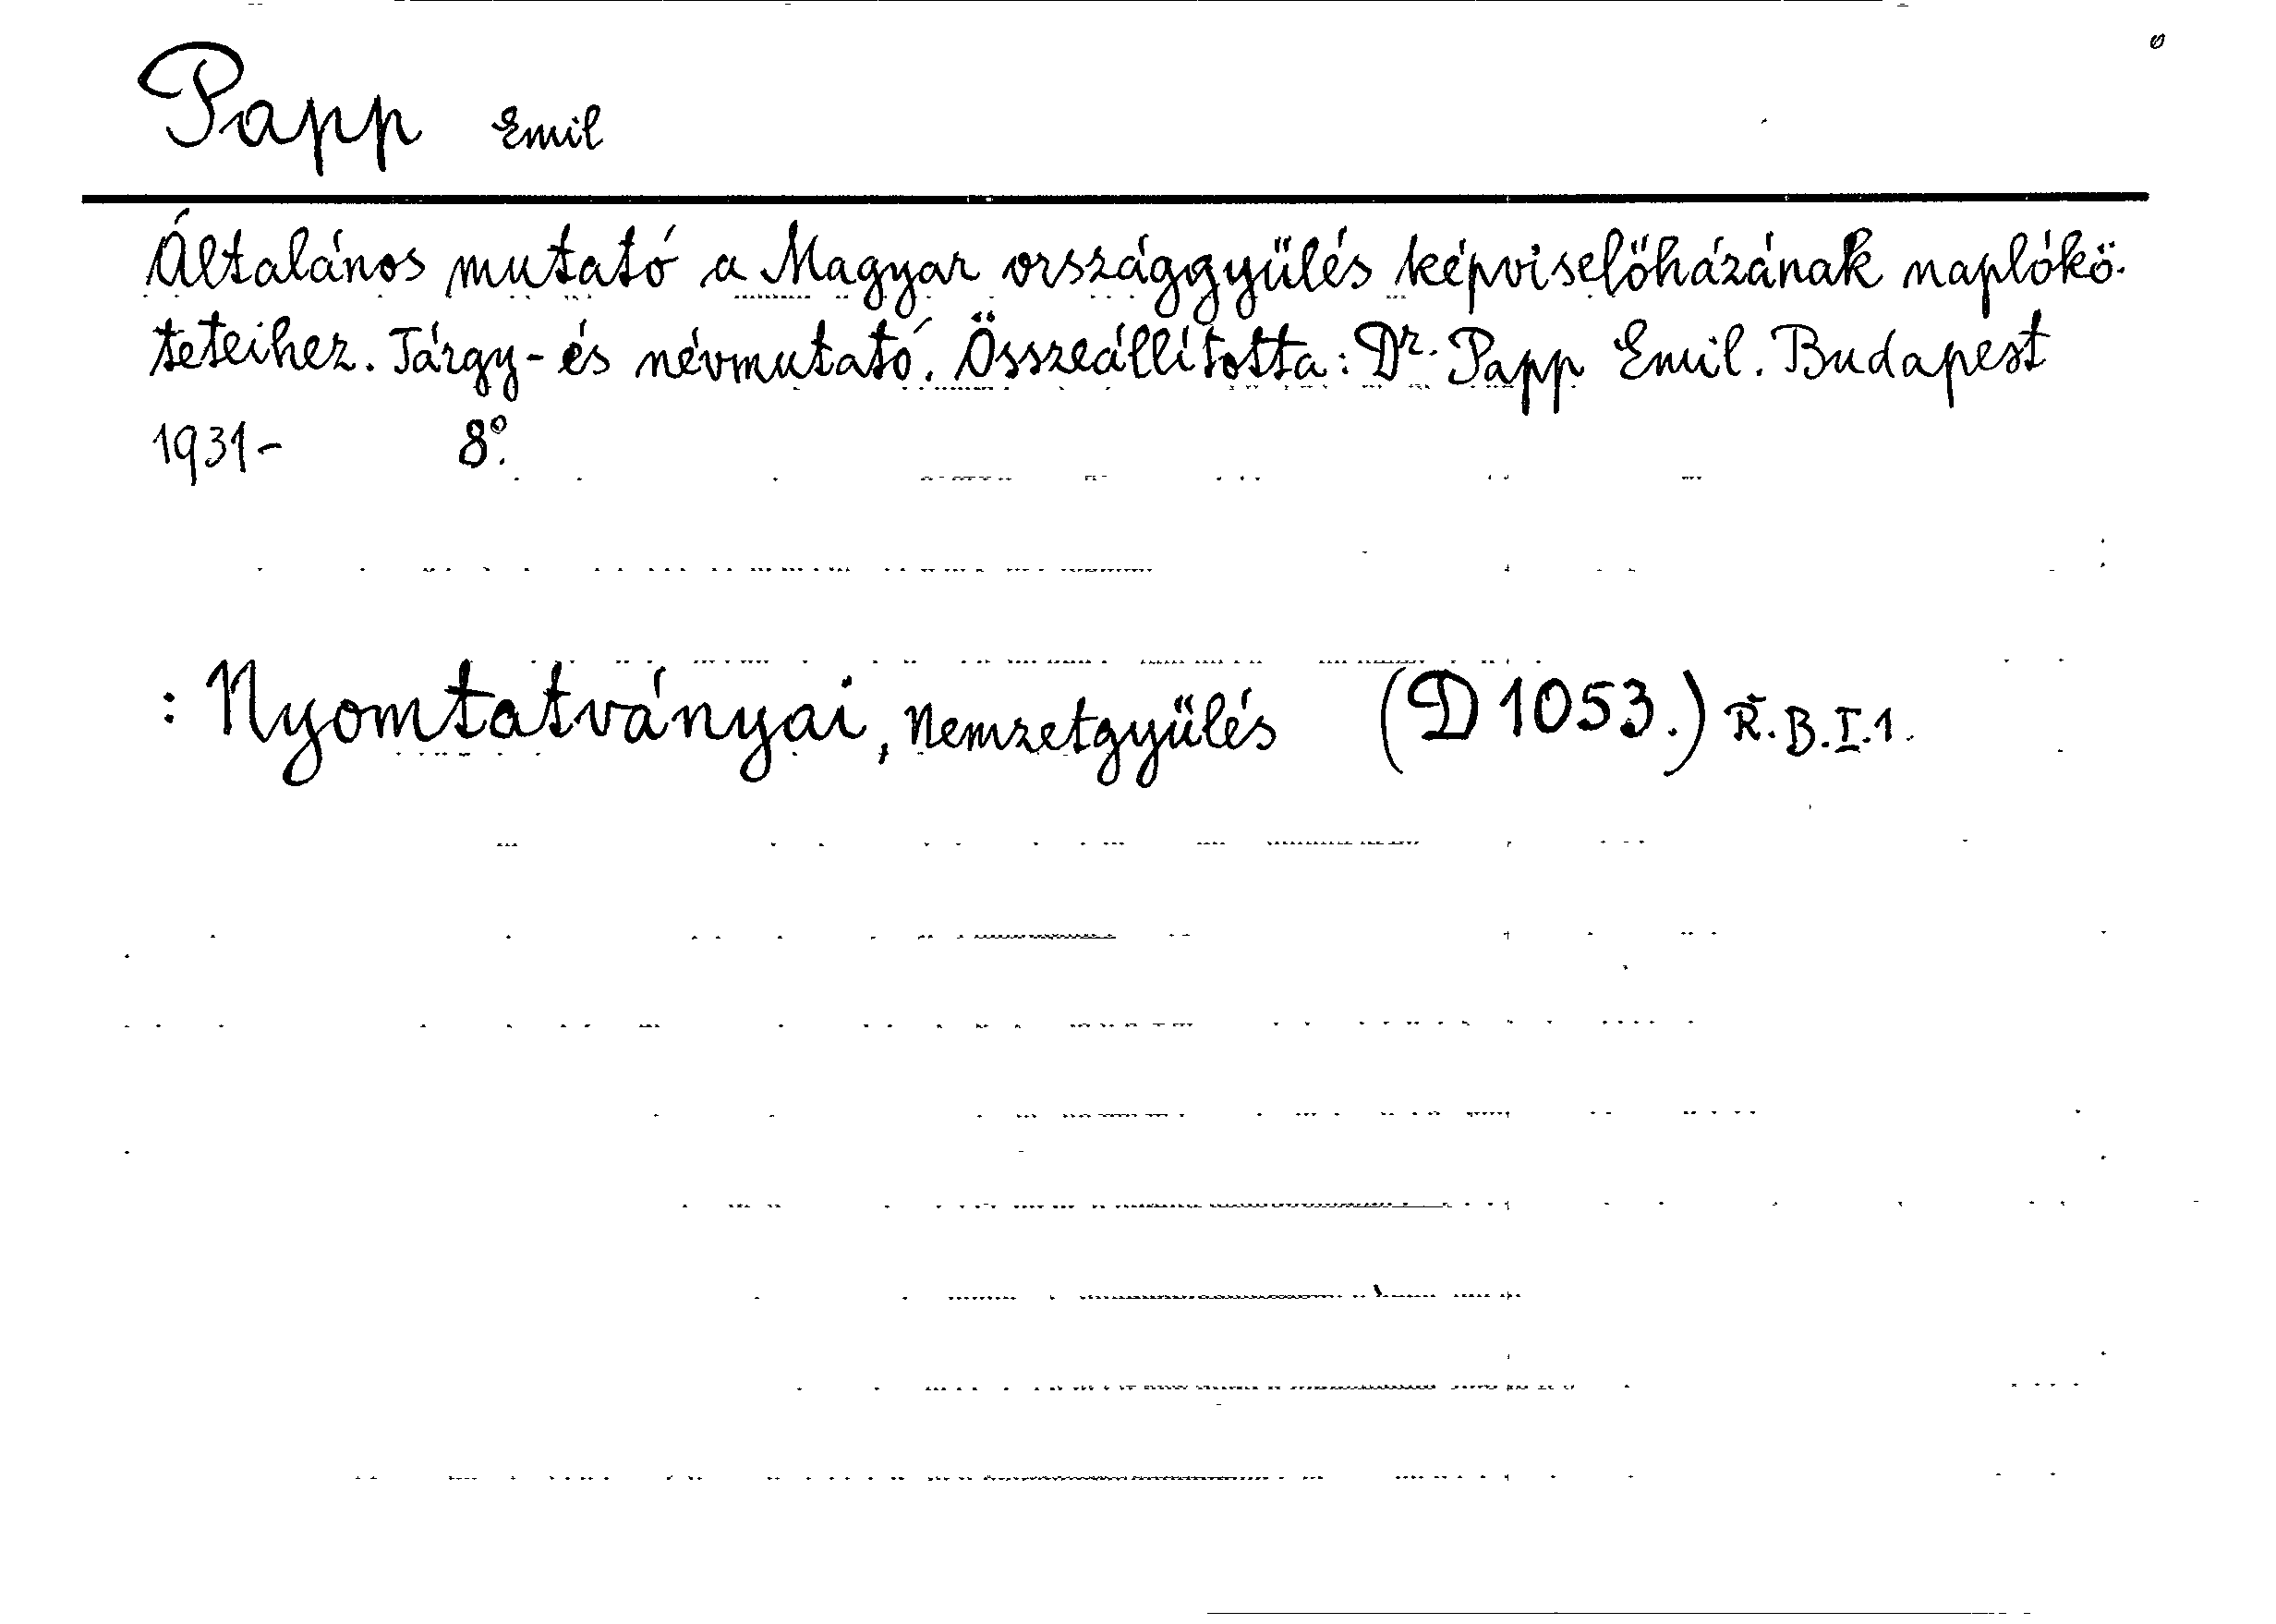 Papp Emil
Általános mutató a Magyar országgyülés képviselőházának naplókö-
teteihez. Tárgy- és névmutató. Összeállította: Dr. Papp Emil. Budapest
1931- 8°.
: Nyomtatványai, Nemzetgyülés (D 1053.) R.B.I.1.